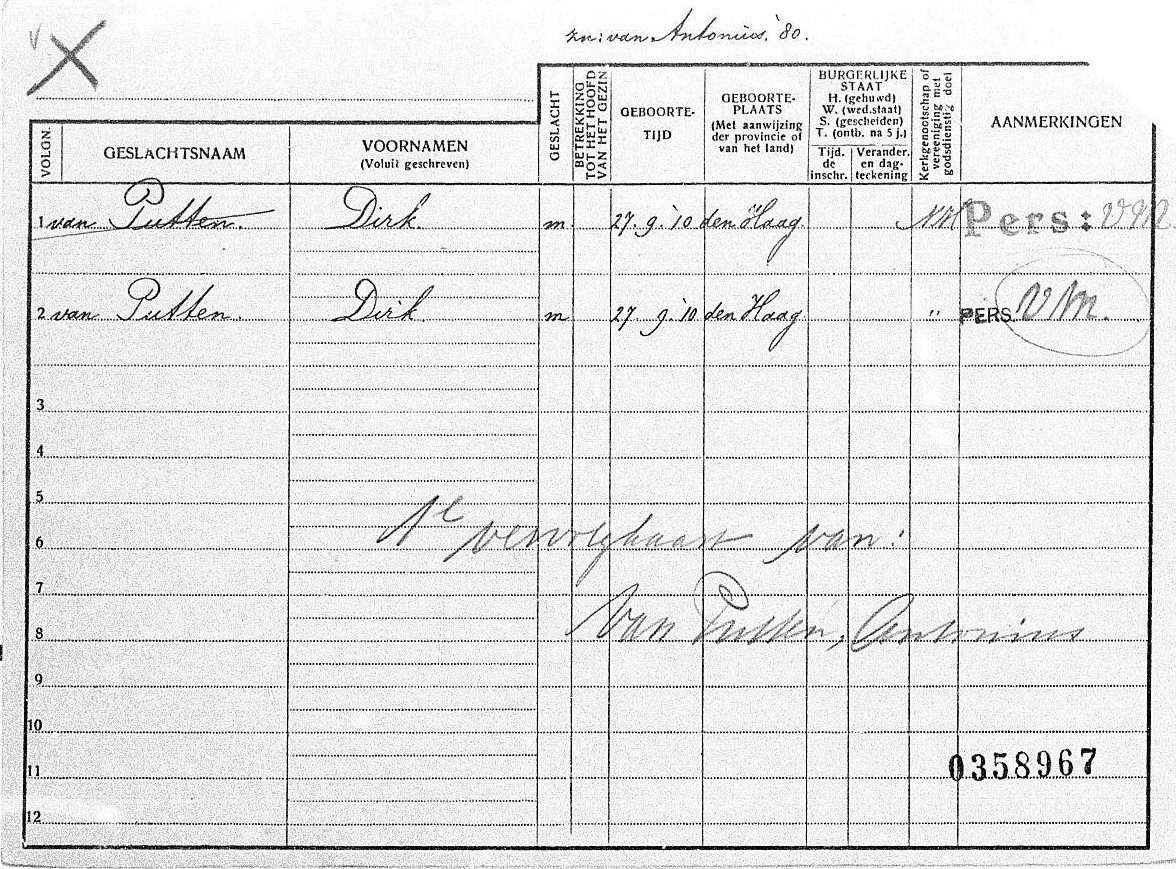 zn: van Antonius. '80.
VOLGN.
GESLACHTSNAAM
VOORNAMEN
(Voluit geschreven)
GESLACHT
BETREKKING
TOT HET HOOFD
VAN HET GEZIN
GEBOORTE-
TIJD
GEBOORTE-
PLAATS
(Met aanwijzing
der provincie of
van het land)
BURGERLIJKE
STAAT
H. (gehuwd)
W. (wed.staat)
S. (gescheiden)
T. (ontb. na 5 j.)
Tijd.
de
inschr.
Verander.
en dag-
teekening
Kerkgenootschap of
vereeniging met
godsdienstig doel
AANMERKINGEN
1 van Putten. Dirk. m. 27. 9. '10 den Haag. NH Pers: VM.
2 van Putten. Dirk. m 27 9. '10 den Haag " PERS. VM.
3
4
5
1e vervolgkaart van:
6
7
van Putten, Antonius
8
9
10
0358967
11
12